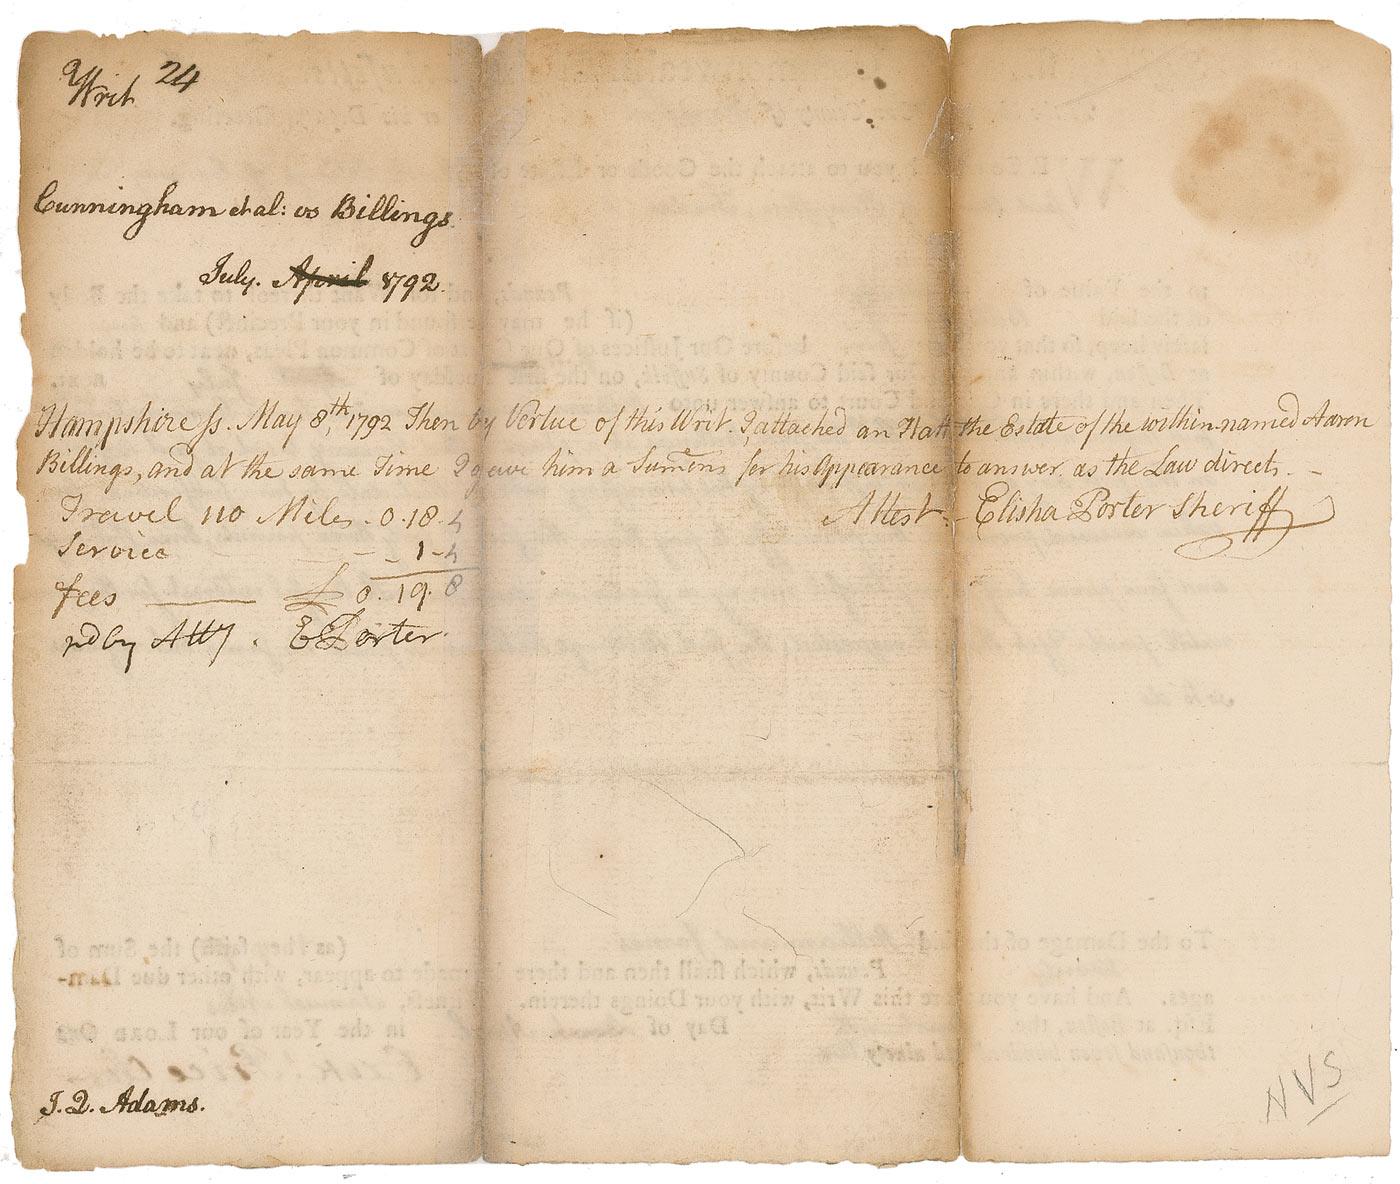 Writ 24
Cunningham et al: vs Billings.
July. April 1792.
Hampshire ss. May 8th, 1792 Then by Vertue of this Writ. I attached an Hatt the Estate of the within named Aaron
Billings, and at the same Time I gave him a Sumons for his Appearance to answer as the Law directs. –
Attest. – Elisha Porter Sheriff
Travel 110 Miles. 0.18.4
Service – 1–4
fees — £ 0.19.8
pd by Atty. E Porter.
J. Q. Adams.
NVS